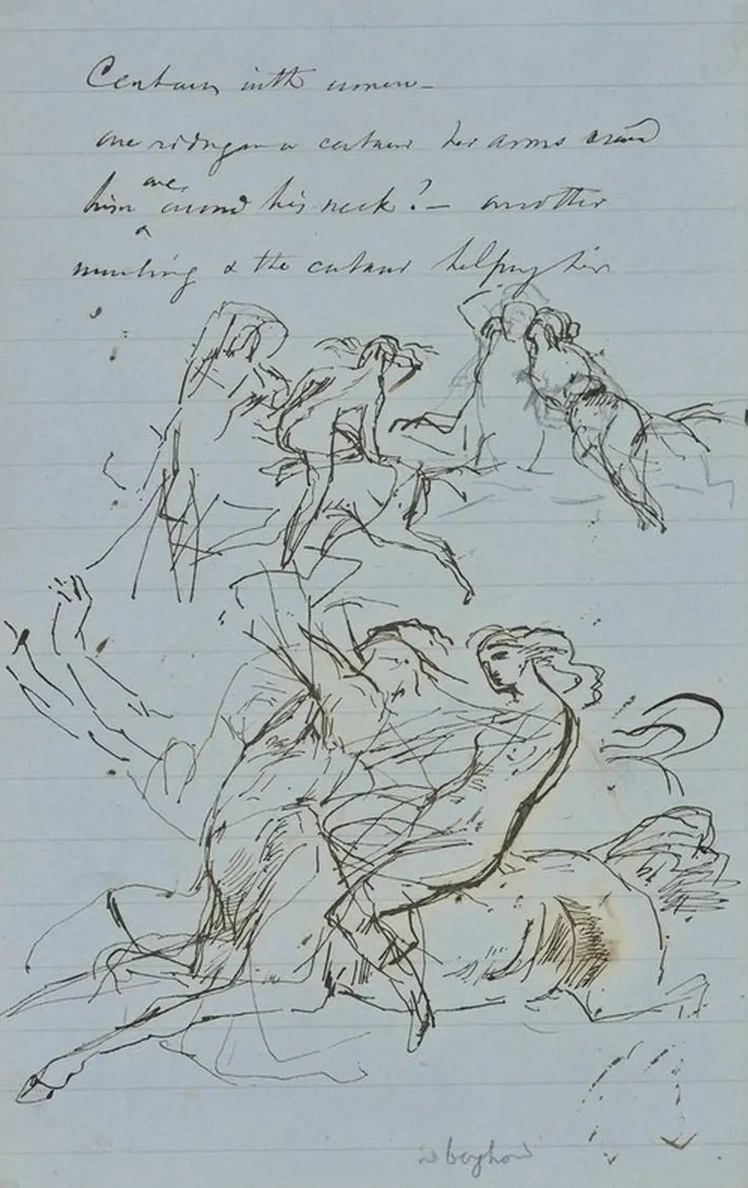 Centaurs with women –
one riding on a centaur her arms round
him are around his neck? – another
mounting & the centaur helping her